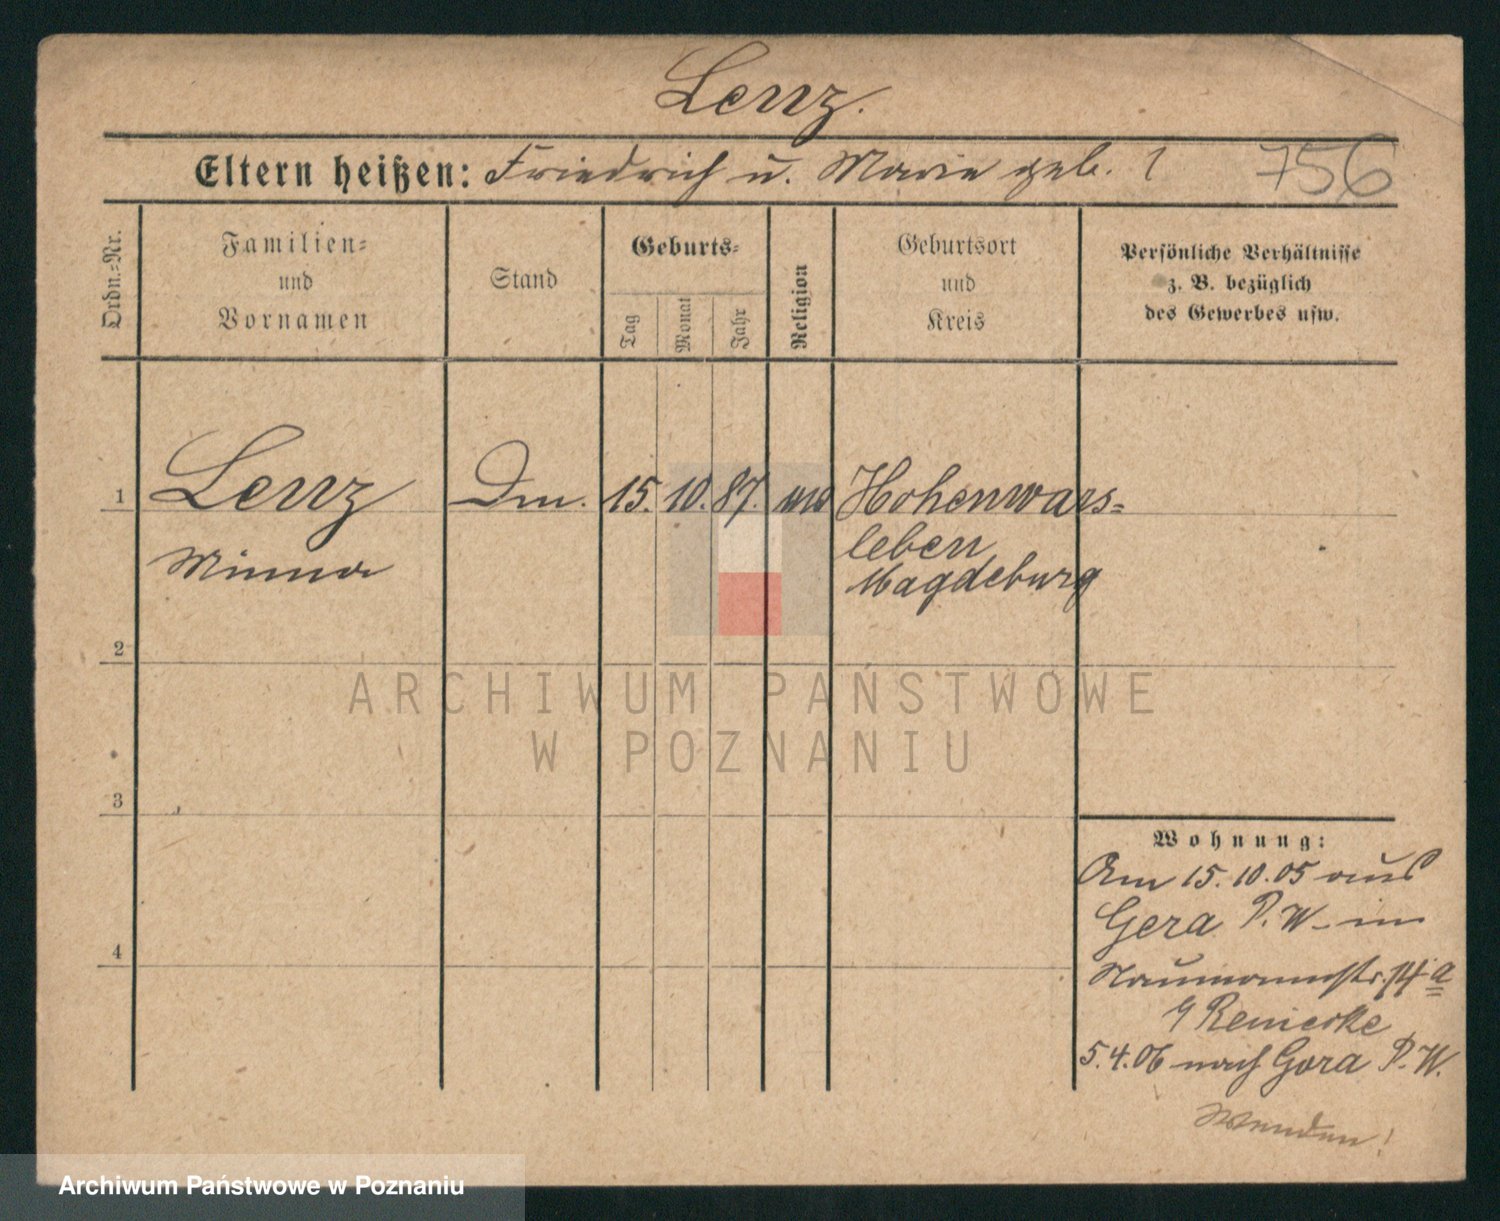 Lenz.
Eltern heißen: Friedrich u. Marie geb. ?
756
Ordn.-Nr.
Familien-
und
Vornamen
Stand
Geburts-
Tag
Monat
Jahr
Religion
Geburtsort
und
Kreis
Persönliche Verhältnisse
z. B. bezüglich
des Gewerbes usw.
1
Lenz
Minna
15. 10. 87.
Hohenwars-
leben
Magdeburg
2
3
4
ARCHIWUM PAŃSTWOWE
W POZNANIU
Wohnung:
Am 15.10.05 aus
Gera P. W. in
Naumannstr. 14a
Reniecke
5.4.06 nach Gora P. W.
Wenden!
Archiwum Państwowe w Poznaniu